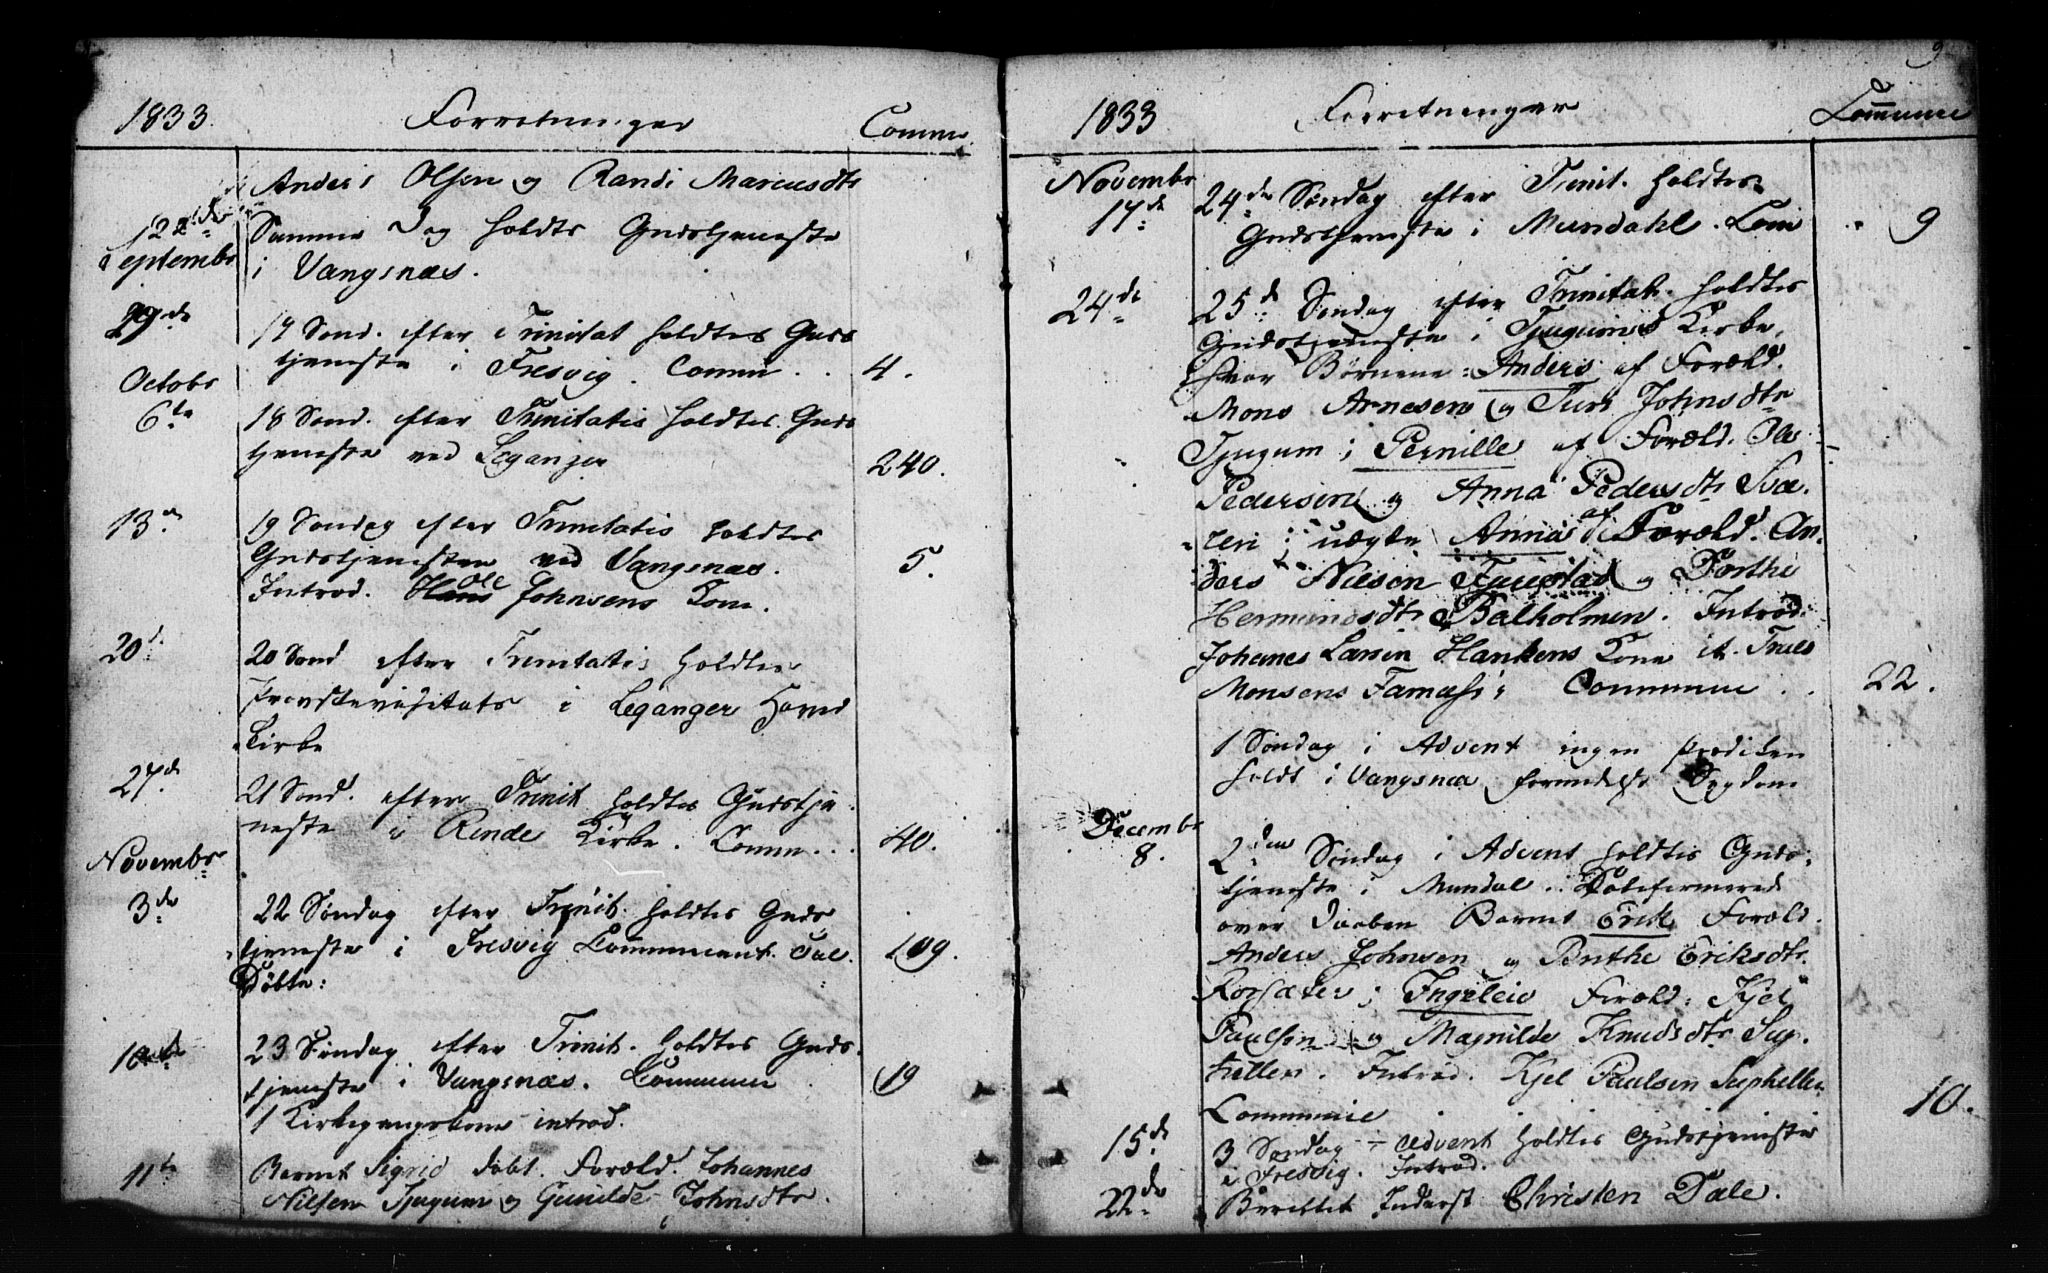 1833 Forretninger Commu.
Anders Olsen og Randi Marcusdtr
Samme Dag holdts Gudstjeneste
Septembr i Vangsnæs.
29de 17 Sønd. efter Trinitat holdtes Guds
tjeneste i Fresvig. Comm . . 4.
Octobr
6te 18 Sønd. efter Trinitatis holdtes Guds
tjeneste ved Leganger 240.
13de 19 Søndag efter Trinitatis holdtes
Gudstjenesten ved Vangsnæs. 5.
Introd. Ole Johnsens Kone.
20de 20 Sønd efter Trinitatis holdtes
Provstevisitats i Leganger Hoved
Kirke
27de 21 Sønd. efter Trinit holdtes Gudstje
neste i Rinde Kirke. Comm . . . 40.
Novembr
3de 22 Søndag efter Trinit. holdtes Guds
tjeneste i Fresvig Communicant. Tal. 109.
Døbte:
10de 23 Søndag efter Trinit. holdtes Guds-
tjeneste i Vangsnæs. Communic 19
1 Kirkegangskone introd.
11te Barnet Sigrid døbt. Foræld. Johannes
Nilsen Tjugum og Gunilde Johnsdtr.
9
1833 Forretninger Commune
Novembr
17de 24de Søndag efter Trinit. holdtes
Gudstjeneste i Mundahl. Com 9
24de 25de Søndag efter Trinitat. holdtes
Gudstjeneste i Tjugums Kirke,
hvor Børnene: Anders af Foræld.
Mons Arnesen og Turi Johnsdtr
Tjugum; Pernille af Foræld. Ole
Pedersen og Anna Pedersdtr Svæ-
ren; uægte Anna af Foræld. An-
ders Nilsen og Dorthe
Hermundsdtr Balholmen. Introd:
Johanes Larsen Hankens Kone it. Truls
Monsens Communic . . 22.
1 Søndag i Advent ingen Prædiken
holdt i Vangsnæs formedelst Sygdom
Decembr
8. 2den Søndag i Advent holdtes Guds-
tjeneste i Mundal.
over Daaben Barnet Erik Foræld.
Anders Johnsen og Brithe Eriksdtr.
; Ingeleiv Foræld: Kjel
Paulsen og Magnilde Knudsdtr Sup-
hellen. Introd. Kjel Paulsen Suphellen
Communic 10.
15de 3 Søndag i Advent holdtes Gudstjeneste
i Fresvig. Introd.
22de Berettet Inderst Christen Dale.